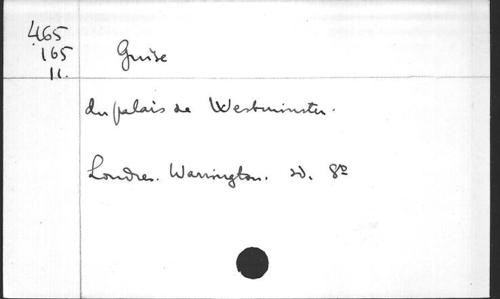 465
165
11.
Guise
du palais de Westminster.
Londres. Warrington. sd. 8º